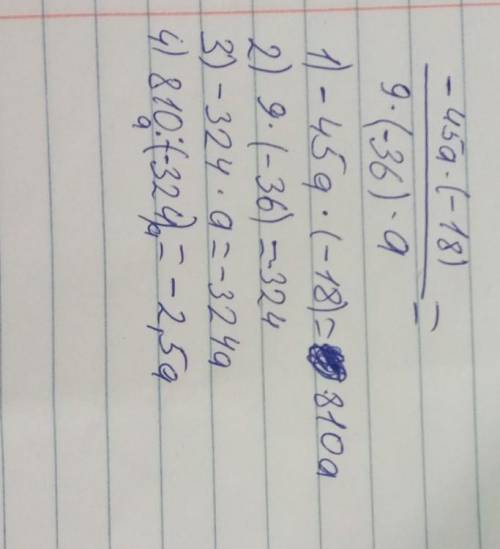 -45a·(-18)
9·(-36)·a =
1) -45a·(-18)= 810a
2) 9·(-36)=-324
3) -324·a=-324a
4) 810a:(-324a)=-2,5a